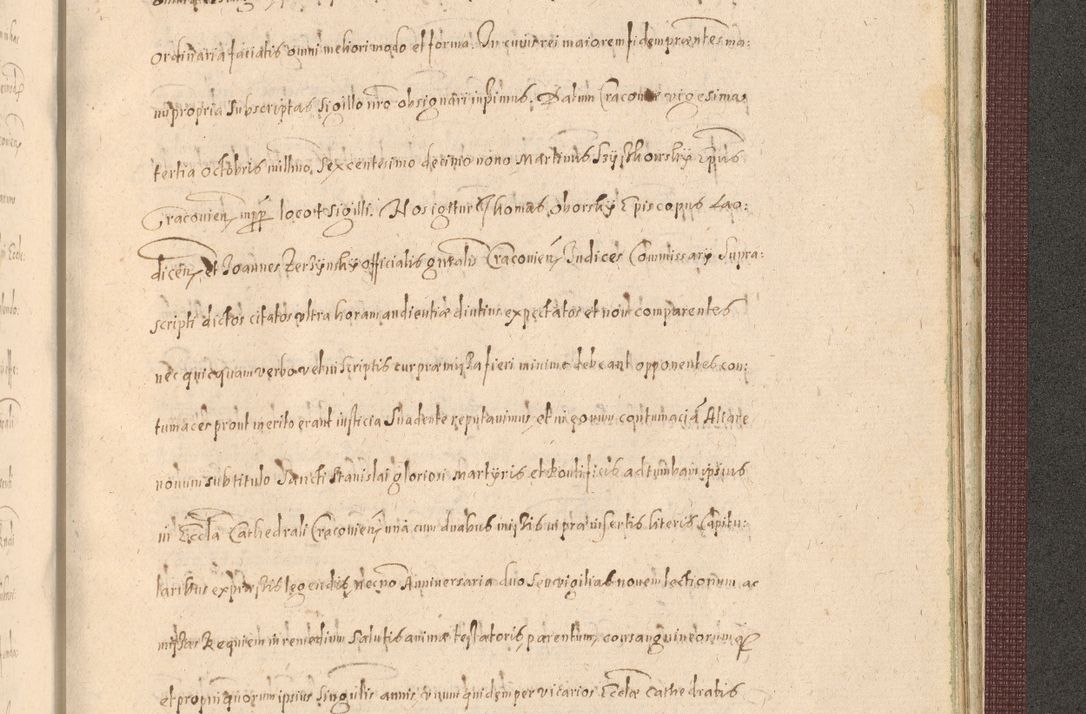 Ordinaria faciatis omni meliori modo et forma. In cuius rei maiorem fidem præntes ma:
nu propria subscriptas sigillo nro obsignari iussimus. Datum Cracoviæ vigesima
tertia Octobris millmo sexcentesimo decimo nono Martinus Szyszkowsky Epus
Cracovien mpp loco + sigilli. Nos igitur Thomas Oborsky Episcopus Lao:
dicen, et Joannes Zerzynsky officialis gnralis Cracovien, Judices Commissary supra:
scripti dictos citatos ultra horam audientiæ diutius expectatos et non comparentes
nec quicquam verbo vel in scriptis cur præmissa fieri minime debeant opponentes con:
tumaces prout merito erant iusticia suadente reputavimus, et in eorum contumaciã Altare
nonum sub titulo Sancti Stanislai gloriosi Martyris et Pontificis ad tumbam ipsius
in Eccla Cathedrali Cracovien, una cum duabus missis in præinsertis literis Capitu:
laribus expressis legendis, necno Anniversaria duo seu vigilias novem lectionum ac
missas Requiem in remedium salutis animæ testatoris, parentum, consanguineorumq
et propinquorum ipsius singulis annis, unum quidem per vicarios Ecclæ Cathedralis